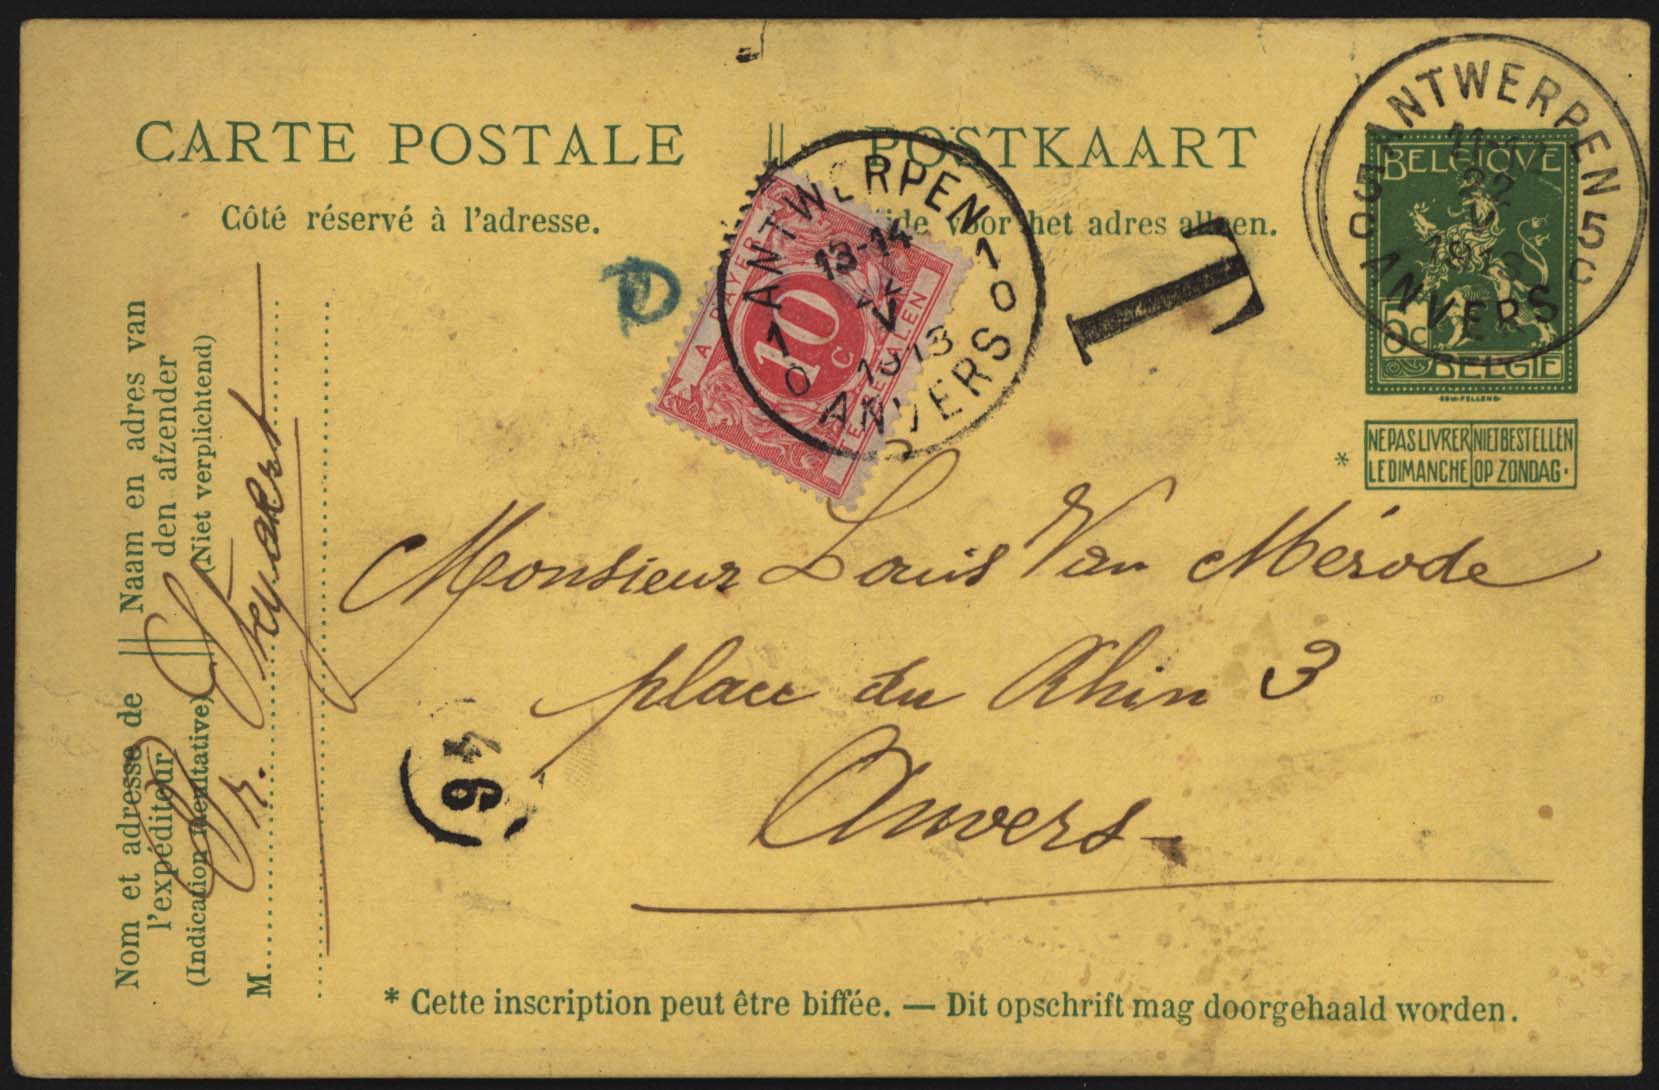 CARTE POSTALE || POSTKAART
Côté réservé à l'adresse.
voor het adres alleen.
ANTWERPEN
5 5
C C
22
V
1913
ANVERS
BELGIQUE
5c
BELGIE
NE PAS LIVRER NIET BESTELLEN
LE DIMANCHE OP ZONDAG.
*
T
ANTWERPEN
13-14
V
1913
10 10
ANVERS
A PAYER
10
C
A TE BETALEN
Monsieur Louis Van Mérode
place du Rhin 3
Anvers
46
Nom et adresse de || Naam en adres van
l'expéditeur den afzender
(Indication facultative) (Niet verplichtend)
M
* Cette inscription peut être biffée. — Dit opschrift mag doorgehaald worden.